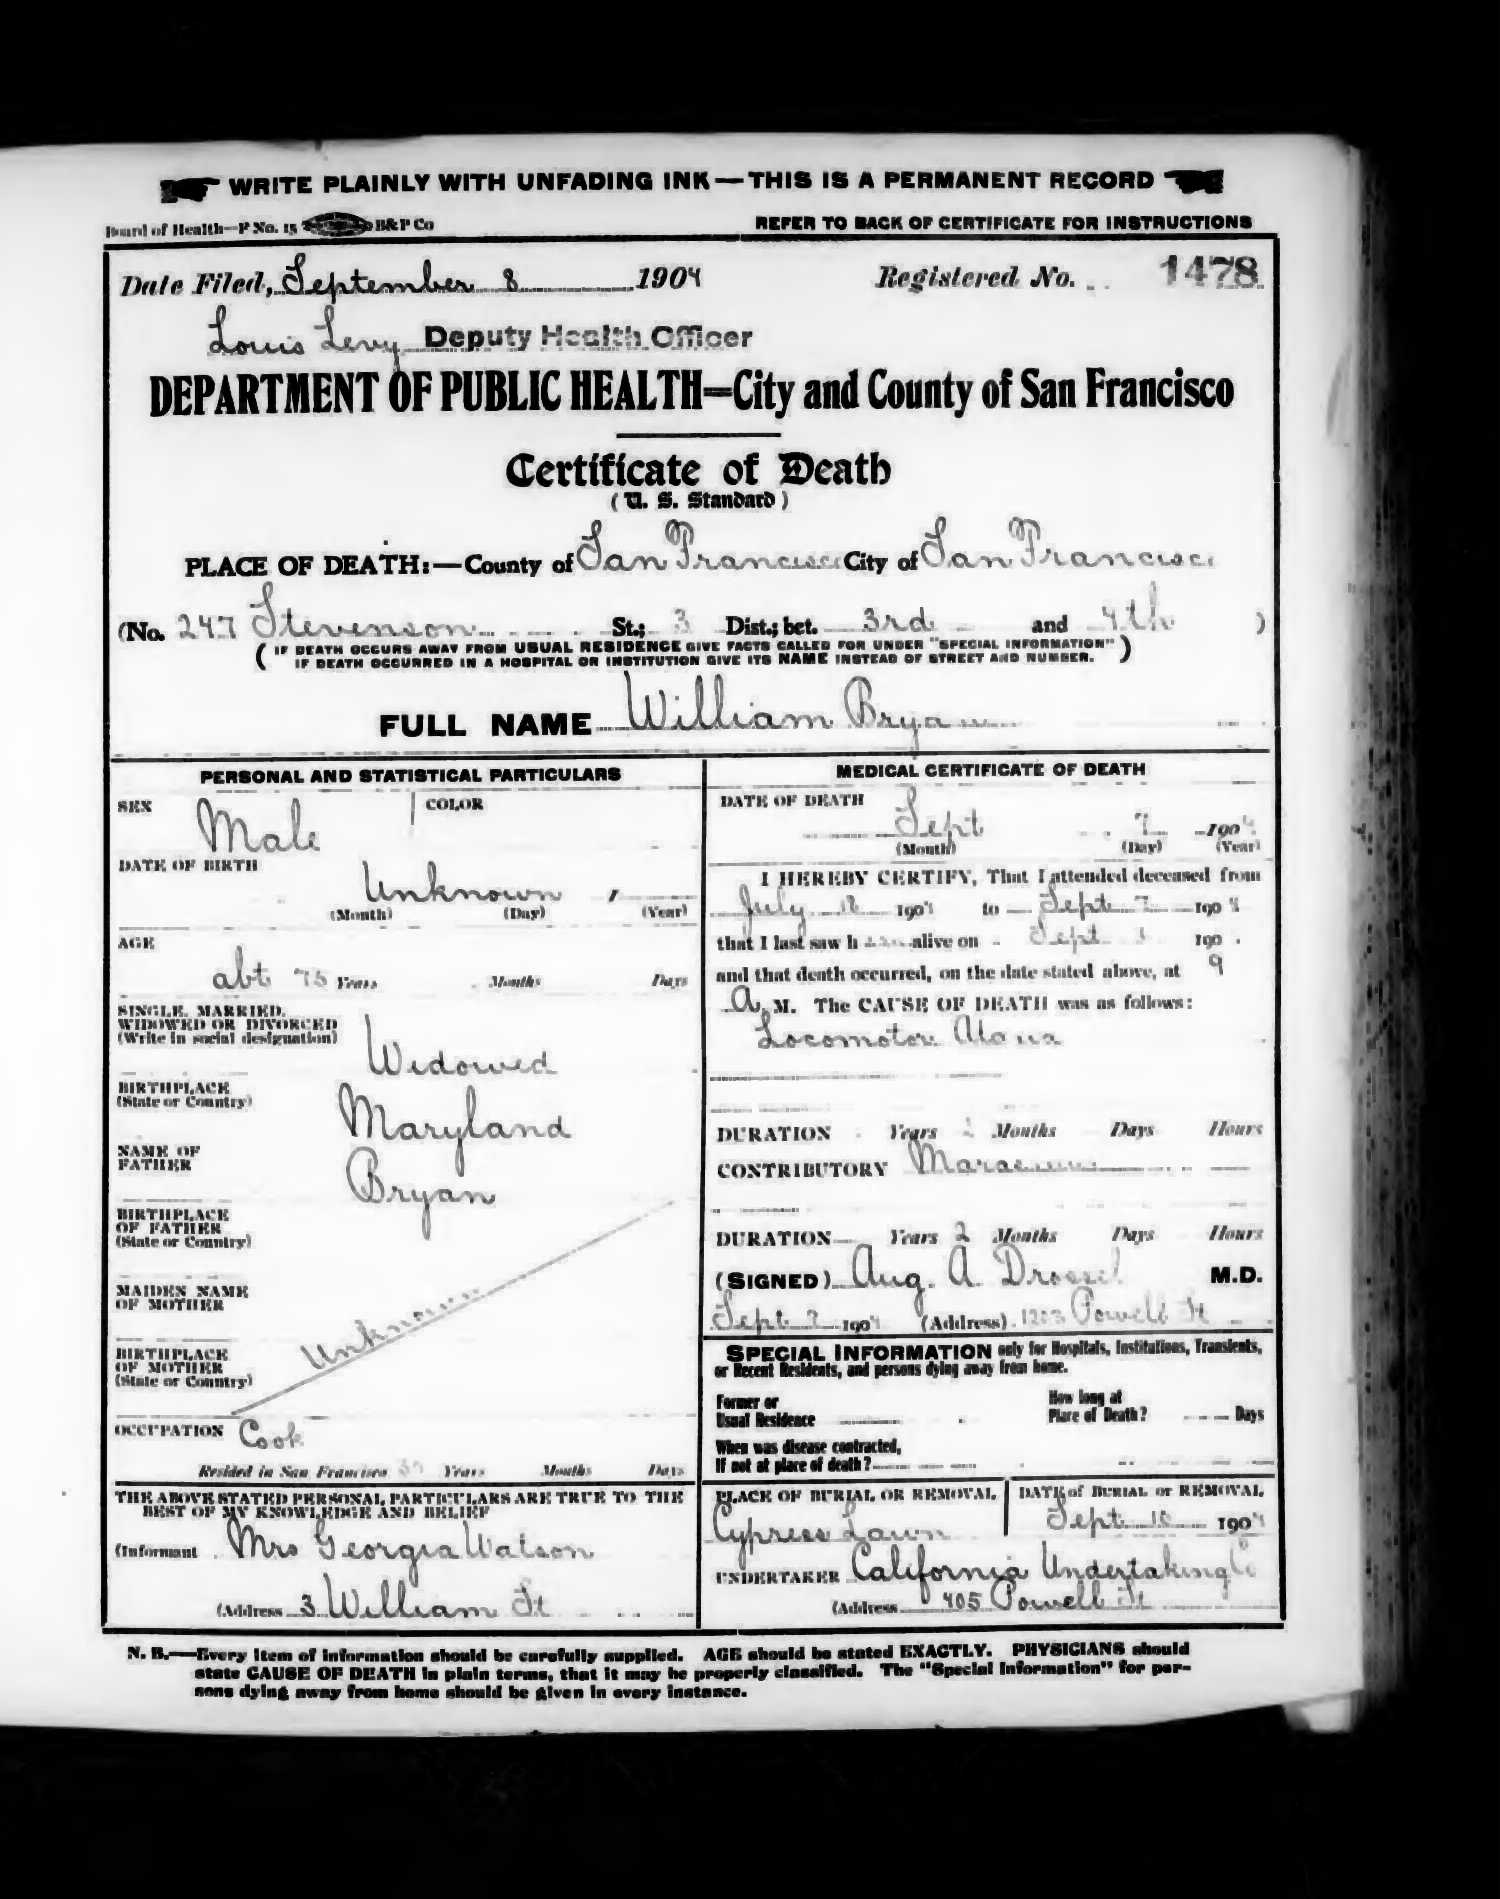 WRITE PLAINLY WITH UNFADING INK—THIS IS A PERMANENT RECORD
Board of Health—P No. 15 B&P Co REFER TO BACK OF CERTIFICATE FOR INSTRUCTIONS
Date Filed, September 8 1904 Registered No. 1478
Louis Levy Deputy Health Officer
DEPARTMENT OF PUBLIC HEALTH=City and County of San Francisco
Certificate of Death
(U. S. Standard)
PLACE OF DEATH:—County of San Francisco City of San Francisco
(No. 247 Stevenson St.; 3 Dist.; bet. 3rd and 4th )
( IF DEATH OCCURS AWAY FROM USUAL RESIDENCE GIVE FACTS CALLED FOR UNDER "SPECIAL INFORMATION" )
IF DEATH OCCURRED IN A HOSPITAL OR INSTITUTION GIVE ITS NAME INSTEAD OF STREET AND NUMBER.
FULL NAME William Bryan
PERSONAL AND STATISTICAL PARTICULARS
SEX Male COLOR
DATE OF BIRTH
Unknown
(Month) (Day) (Year)
AGE
abt 75 Years Months Days
SINGLE, MARRIED,
WIDOWED OR DIVORCED
(Write in social designation)
Widowed
BIRTHPLACE
(State or Country)
Maryland
NAME OF
FATHER
Bryan
BIRTHPLACE
OF FATHER
(State or Country)
MAIDEN NAME
OF MOTHER
Unknown
BIRTHPLACE
OF MOTHER
(State or Country)
OCCUPATION Cook
Resided in San Francisco Years Months Days
THE ABOVE STATED PERSONAL PARTICULARS ARE TRUE TO THE
BEST OF MY KNOWLEDGE AND BELIEF
(Informant Mrs Georgia Watson
(Address 3 William St
MEDICAL CERTIFICATE OF DEATH
DATE OF DEATH
Sept 7 1904
(Month) (Day) (Year)
I HEREBY CERTIFY, That I attended deceased from
July 1904 to Sept 7 1904
that I last saw h alive on Sept 190
and that death occurred, on the date stated above, at 9
A M. The CAUSE OF DEATH was as follows:
Locomotor Ataxia
DURATION Years Months Days Hours
CONTRIBUTORY
DURATION Years 2 Months Days Hours
(SIGNED) Aug. A. M.D.
Sept 1904 (Address) Powell St
SPECIAL INFORMATION only for Hospitals, Institutions, Transients,
or Recent Residents, and persons dying away from home.
Former or
Usual Residence
How long at
Place of Death? Days
When was disease contracted,
If not at place of death?
PLACE OF BURIAL OR REMOVAL
Cypress Lawn
DATE of BURIAL or REMOVAL
Sept 10 1904
UNDERTAKER California Undertaking Co
(Address 405 Powell St
N. B.—Every item of information should be carefully supplied. AGE should be stated EXACTLY. PHYSICIANS should
state CAUSE OF DEATH in plain terms, that it may be properly classified. The "Special Information" for per-
sons dying away from home should be given in every instance.